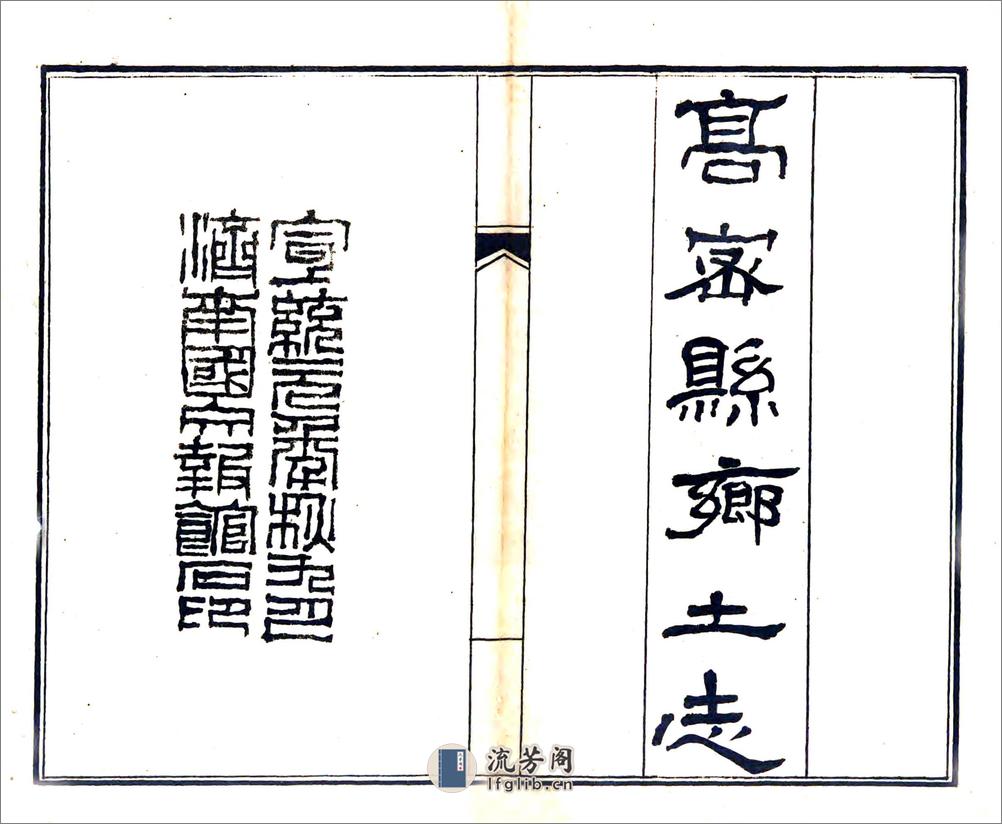 高密縣鄉土志
宣統元年秋九月
濟南國文報館石印
流芳阁
lfglib.cn